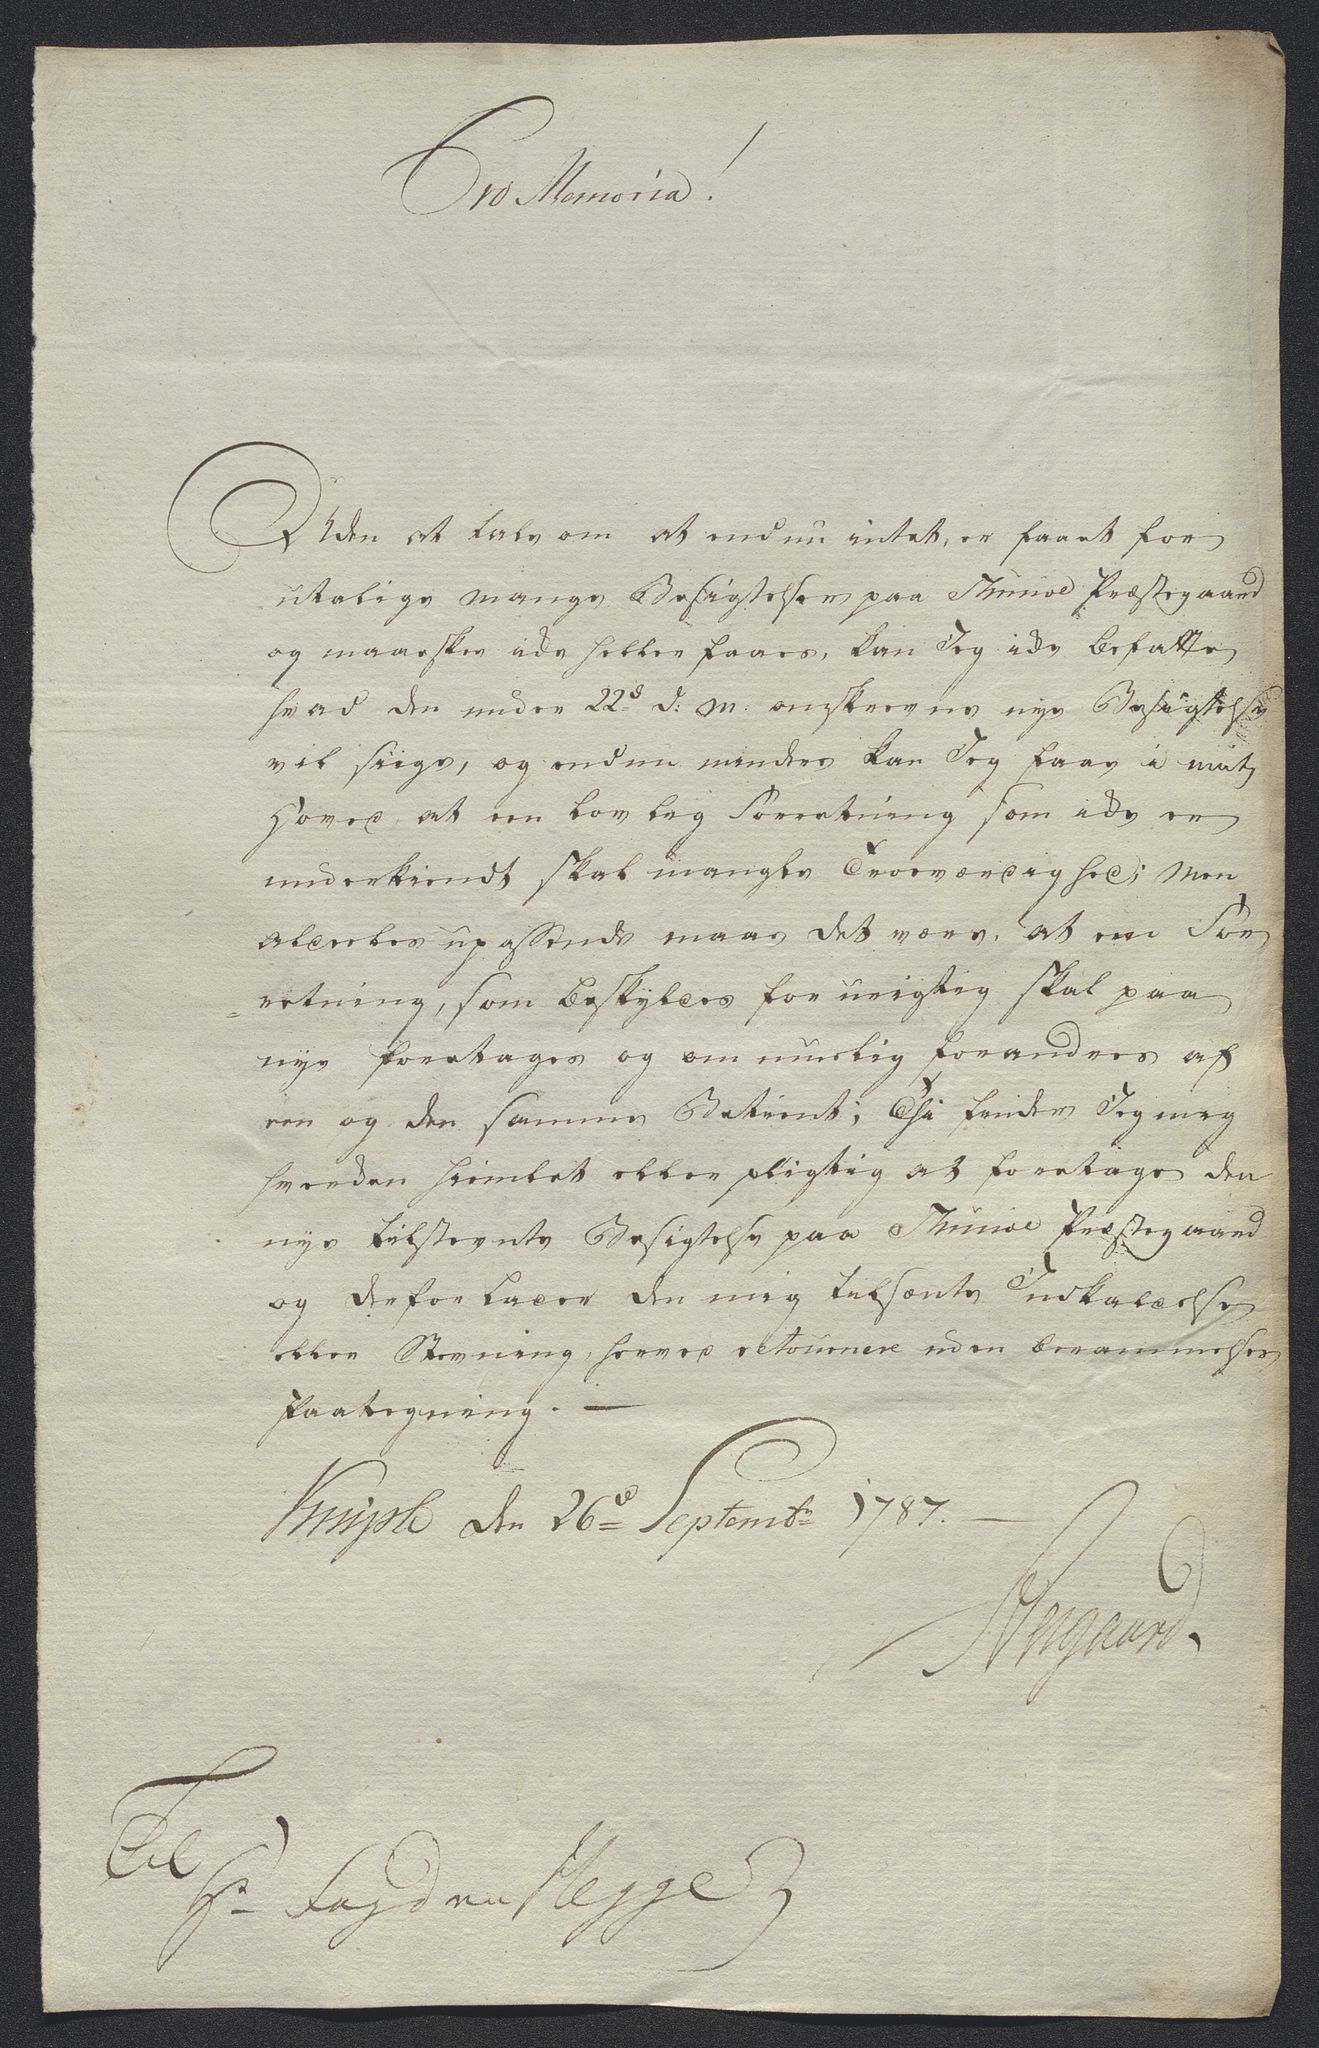 Pro Memoria!
Uden at tale om at endnu intet, er faaet for
utalige mange Besigtelser paa Thinoe Præstegaard
og maaeskee icke heller faaes, kan Jeg icke befatte
hvad den under 22d d: M: onskrevne nye Besigtelse
vil siige, og endnu mindre kan Jeg faae i mit
Hoved at een lovlig Forretning som icke er
underkiendt skal mangle Troeværdighed; Men
aldeeles upassende maae det være, at een For
=retning, som beskyldes for urigtig skal paa
nye foretages og om muelig forandres af
een og den samme Betient; Thi finder Jeg mig
hverken hiemlet eller pligtig at foretage den
nye tilstevnte Besigtelse paa Thinoe Præstegaard
og derfor lader den mig tilsendte Indkaldelse
eller Stevning, herved retournere uden berammelses
Paategning. —
den 26d Septembr 1787. —
Til
Hr Fogd Hegge